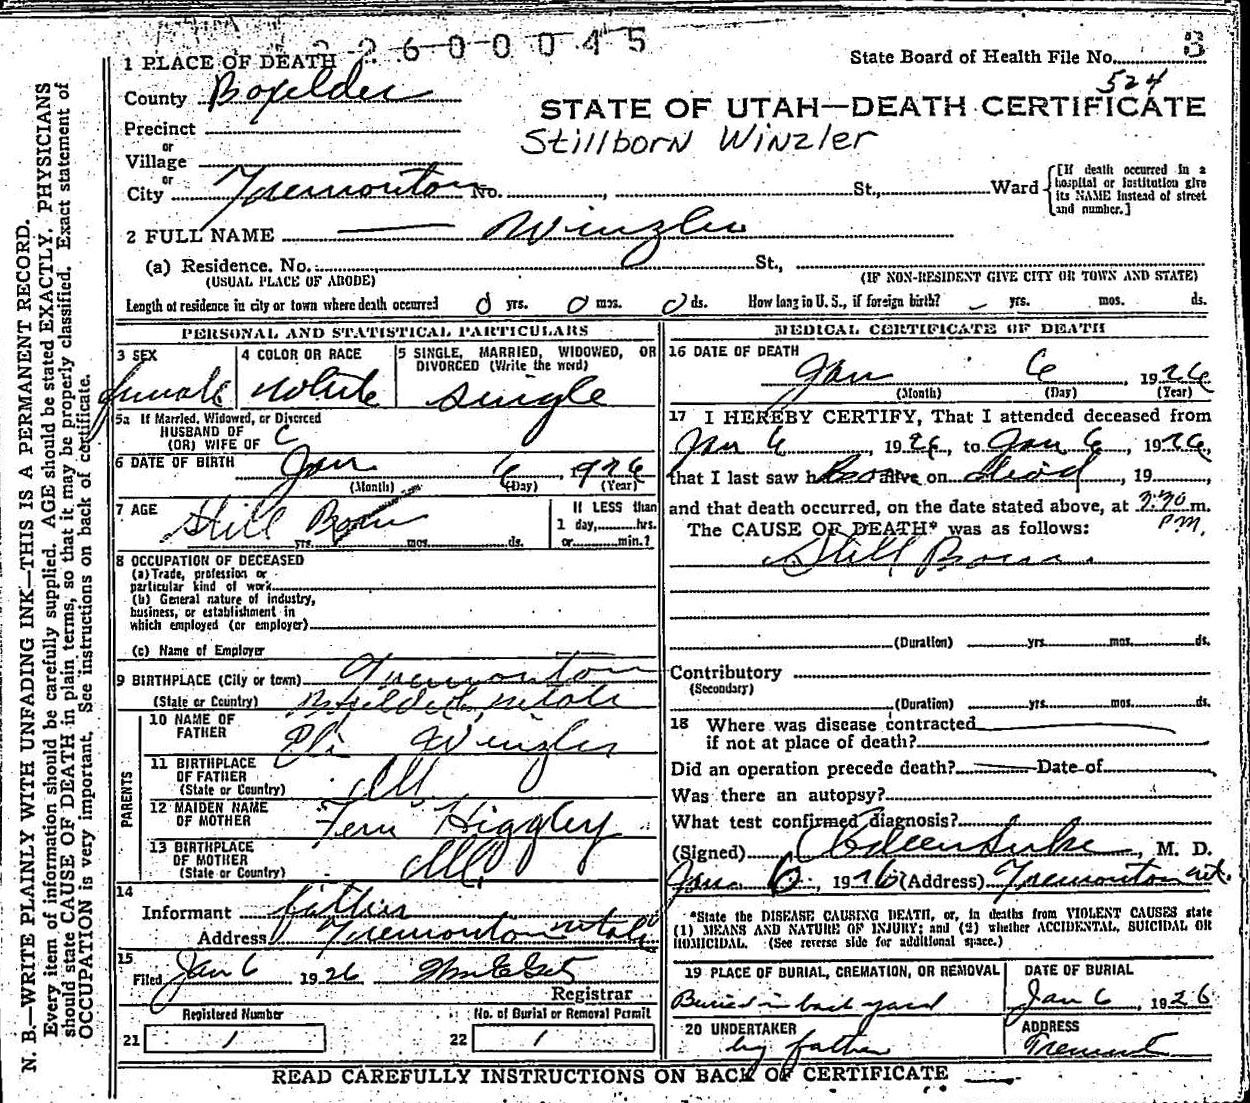 2600045
State Board of Health File No. 3
524
1 PLACE OF DEATH
County Boxelder
STATE OF UTAH—DEATH CERTIFICATE
Precinct
Stillborn Winzler
or
Village
or
City Tremonton No. St., Ward
[If death occurred in a hospital or institution give its NAME instead of street and number.]
2 FULL NAME — Winzler
(a) Residence. No. St.,
(USUAL PLACE OF ABODE) (IF NON-RESIDENT GIVE CITY OR TOWN AND STATE)
Length of residence in city or town where death occurred 0 yrs. 0 mos. 0 ds. How long in U. S., if foreign birth? – yrs. mos. ds.
PERSONAL AND STATISTICAL PARTICULARS
3 SEX
female
4 COLOR OR RACE
white
5 SINGLE, MARRIED, WIDOWED, OR
DIVORCED (Write the word)
single
5a If Married, Widowed, or Divorced
HUSBAND OF
(OR) WIFE OF
6 DATE OF BIRTH Jan 6 1926
(Month) (Day) (Year)
7 AGE
Still Born
yrs. mos. ds.
If LESS than
1 day, hrs.
or min.?
8 OCCUPATION OF DECEASED
(a) Trade, profession or
particular kind of work
(b) General nature of industry,
business, or establishment in
which employed (or employer)
(c) Name of Employer
9 BIRTHPLACE (City or town) Tremonton
(State or Country) Utah
PARENTS
10 NAME OF
FATHER Eli Winzler
11 BIRTHPLACE
OF FATHER
(State or Country) Ill
12 MAIDEN NAME
OF MOTHER Fern Higgley
13 BIRTHPLACE
OF MOTHER
(State or Country) Ill
14
Informant father
Address Tremonton Utah
15
Filed Jan 6 1926
Registrar
Registered Number
21 1
No. of Burial or Removal Permit
22 1
MEDICAL CERTIFICATE OF DEATH
16 DATE OF DEATH
Jan 6, 1926
(Month) (Day) (Year)
17 I HEREBY CERTIFY, That I attended deceased from
Jan 6, 1926, to Jan 6, 1926,
that I last saw h Born alive on Dead, 19
and that death occurred, on the date stated above, at 3:30 m.
P.M.
The CAUSE OF DEATH* was as follows:
Still Born
(Duration) yrs. mos. ds.
Contributory
(Secondary)
(Duration) yrs. mos. ds.
18 Where was disease contracted
if not at place of death?
Did an operation precede death? Date of
Was there an autopsy?
What test confirmed diagnosis?
(Signed) , M. D.
Jan 6, 1926 (Address) Tremonton Ut.
*State the DISEASE CAUSING DEATH, or, in deaths from VIOLENT CAUSES state
(1) MEANS AND NATURE OF INJURY; and (2) whether ACCIDENTAL, SUICIDAL OR
HOMICIDAL. (See reverse side for additional space.)
19 PLACE OF BURIAL, CREMATION, OR REMOVAL
Buried in back yard
DATE OF BURIAL
Jan 6, 1926
20 UNDERTAKER
by father
ADDRESS
Tremont
READ CAREFULLY INSTRUCTIONS ON BACK OF CERTIFICATE
N. B.—WRITE PLAINLY WITH UNFADING INK—THIS IS A PERMANENT RECORD.
Every item of information should be carefully supplied. AGE should be stated EXACTLY. PHYSICIANS
should state CAUSE OF DEATH in plain terms, so that it may be properly classified. Exact statement of
OCCUPATION is very important. See instructions on back of certificate.